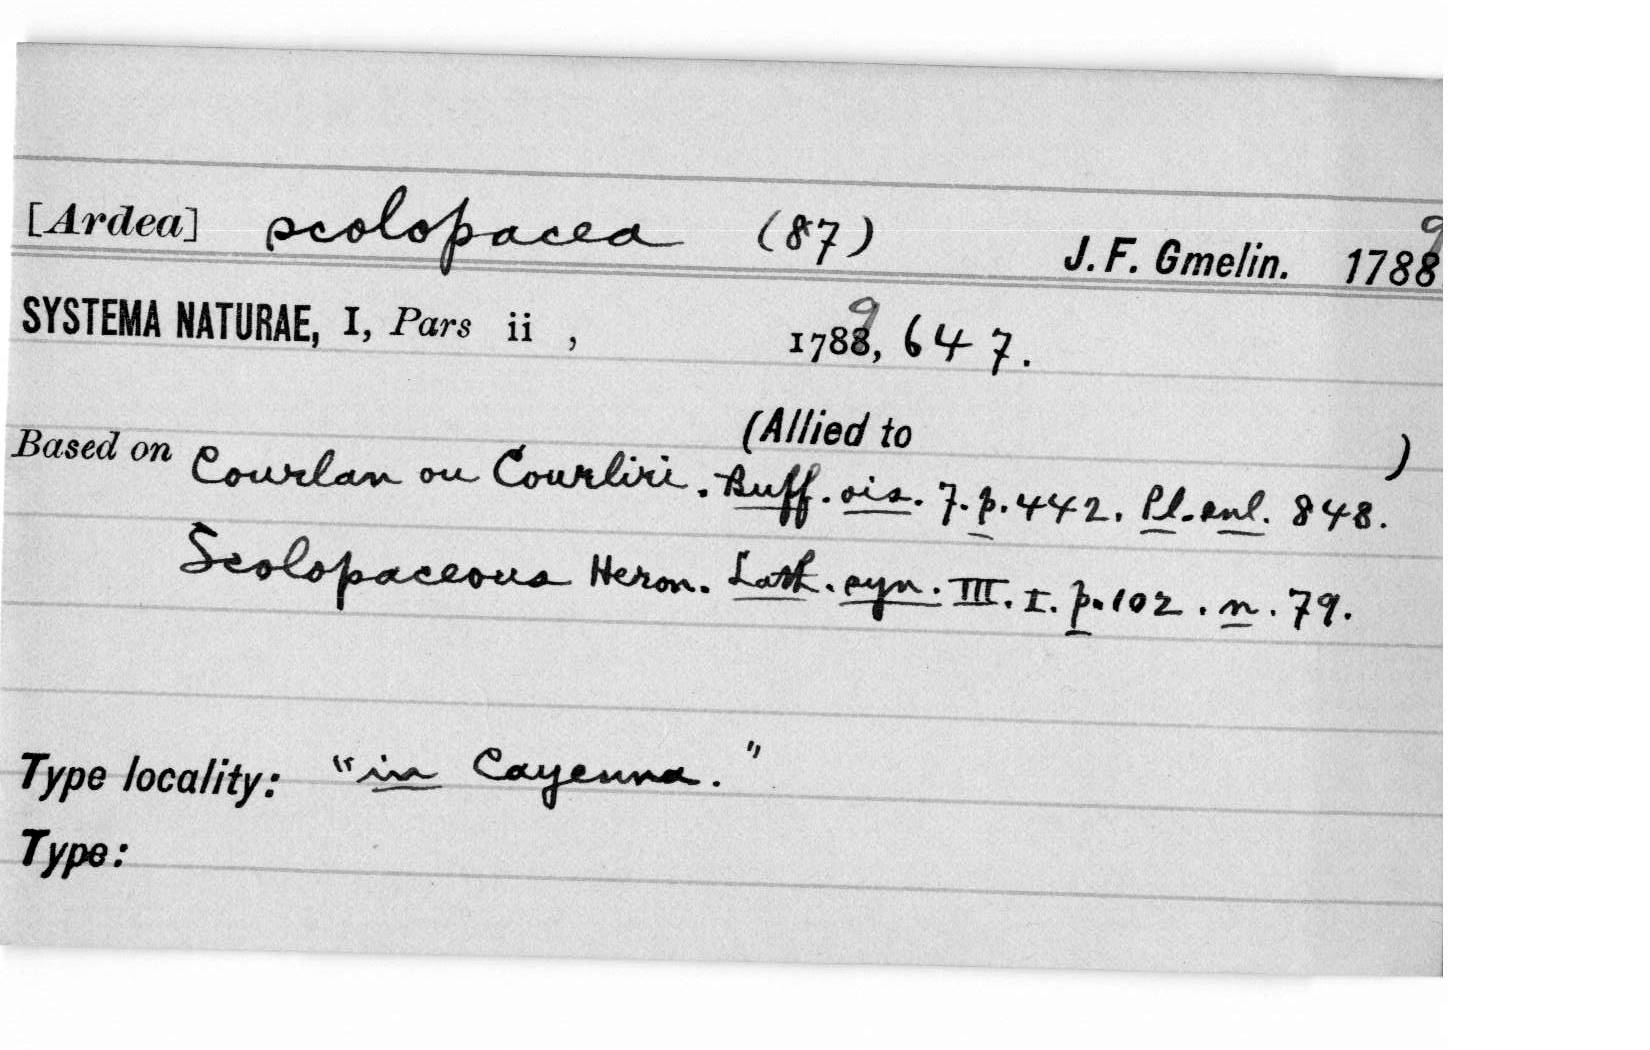 [Ardea] scolopacea (87) J. F. Gmelin. 1788 9
SYSTEMA NATURAE, I, Pars ii , 1788 9, 647.
(Allied to )
Based on Courlan ou Courliri. Buff. ois. 7. p. 442. Pl. enl. 848.
Scolopaceous Heron. Lath. syn. III. I. p. 102. n. 79.
Type locality: "in Cayenna."
Type: